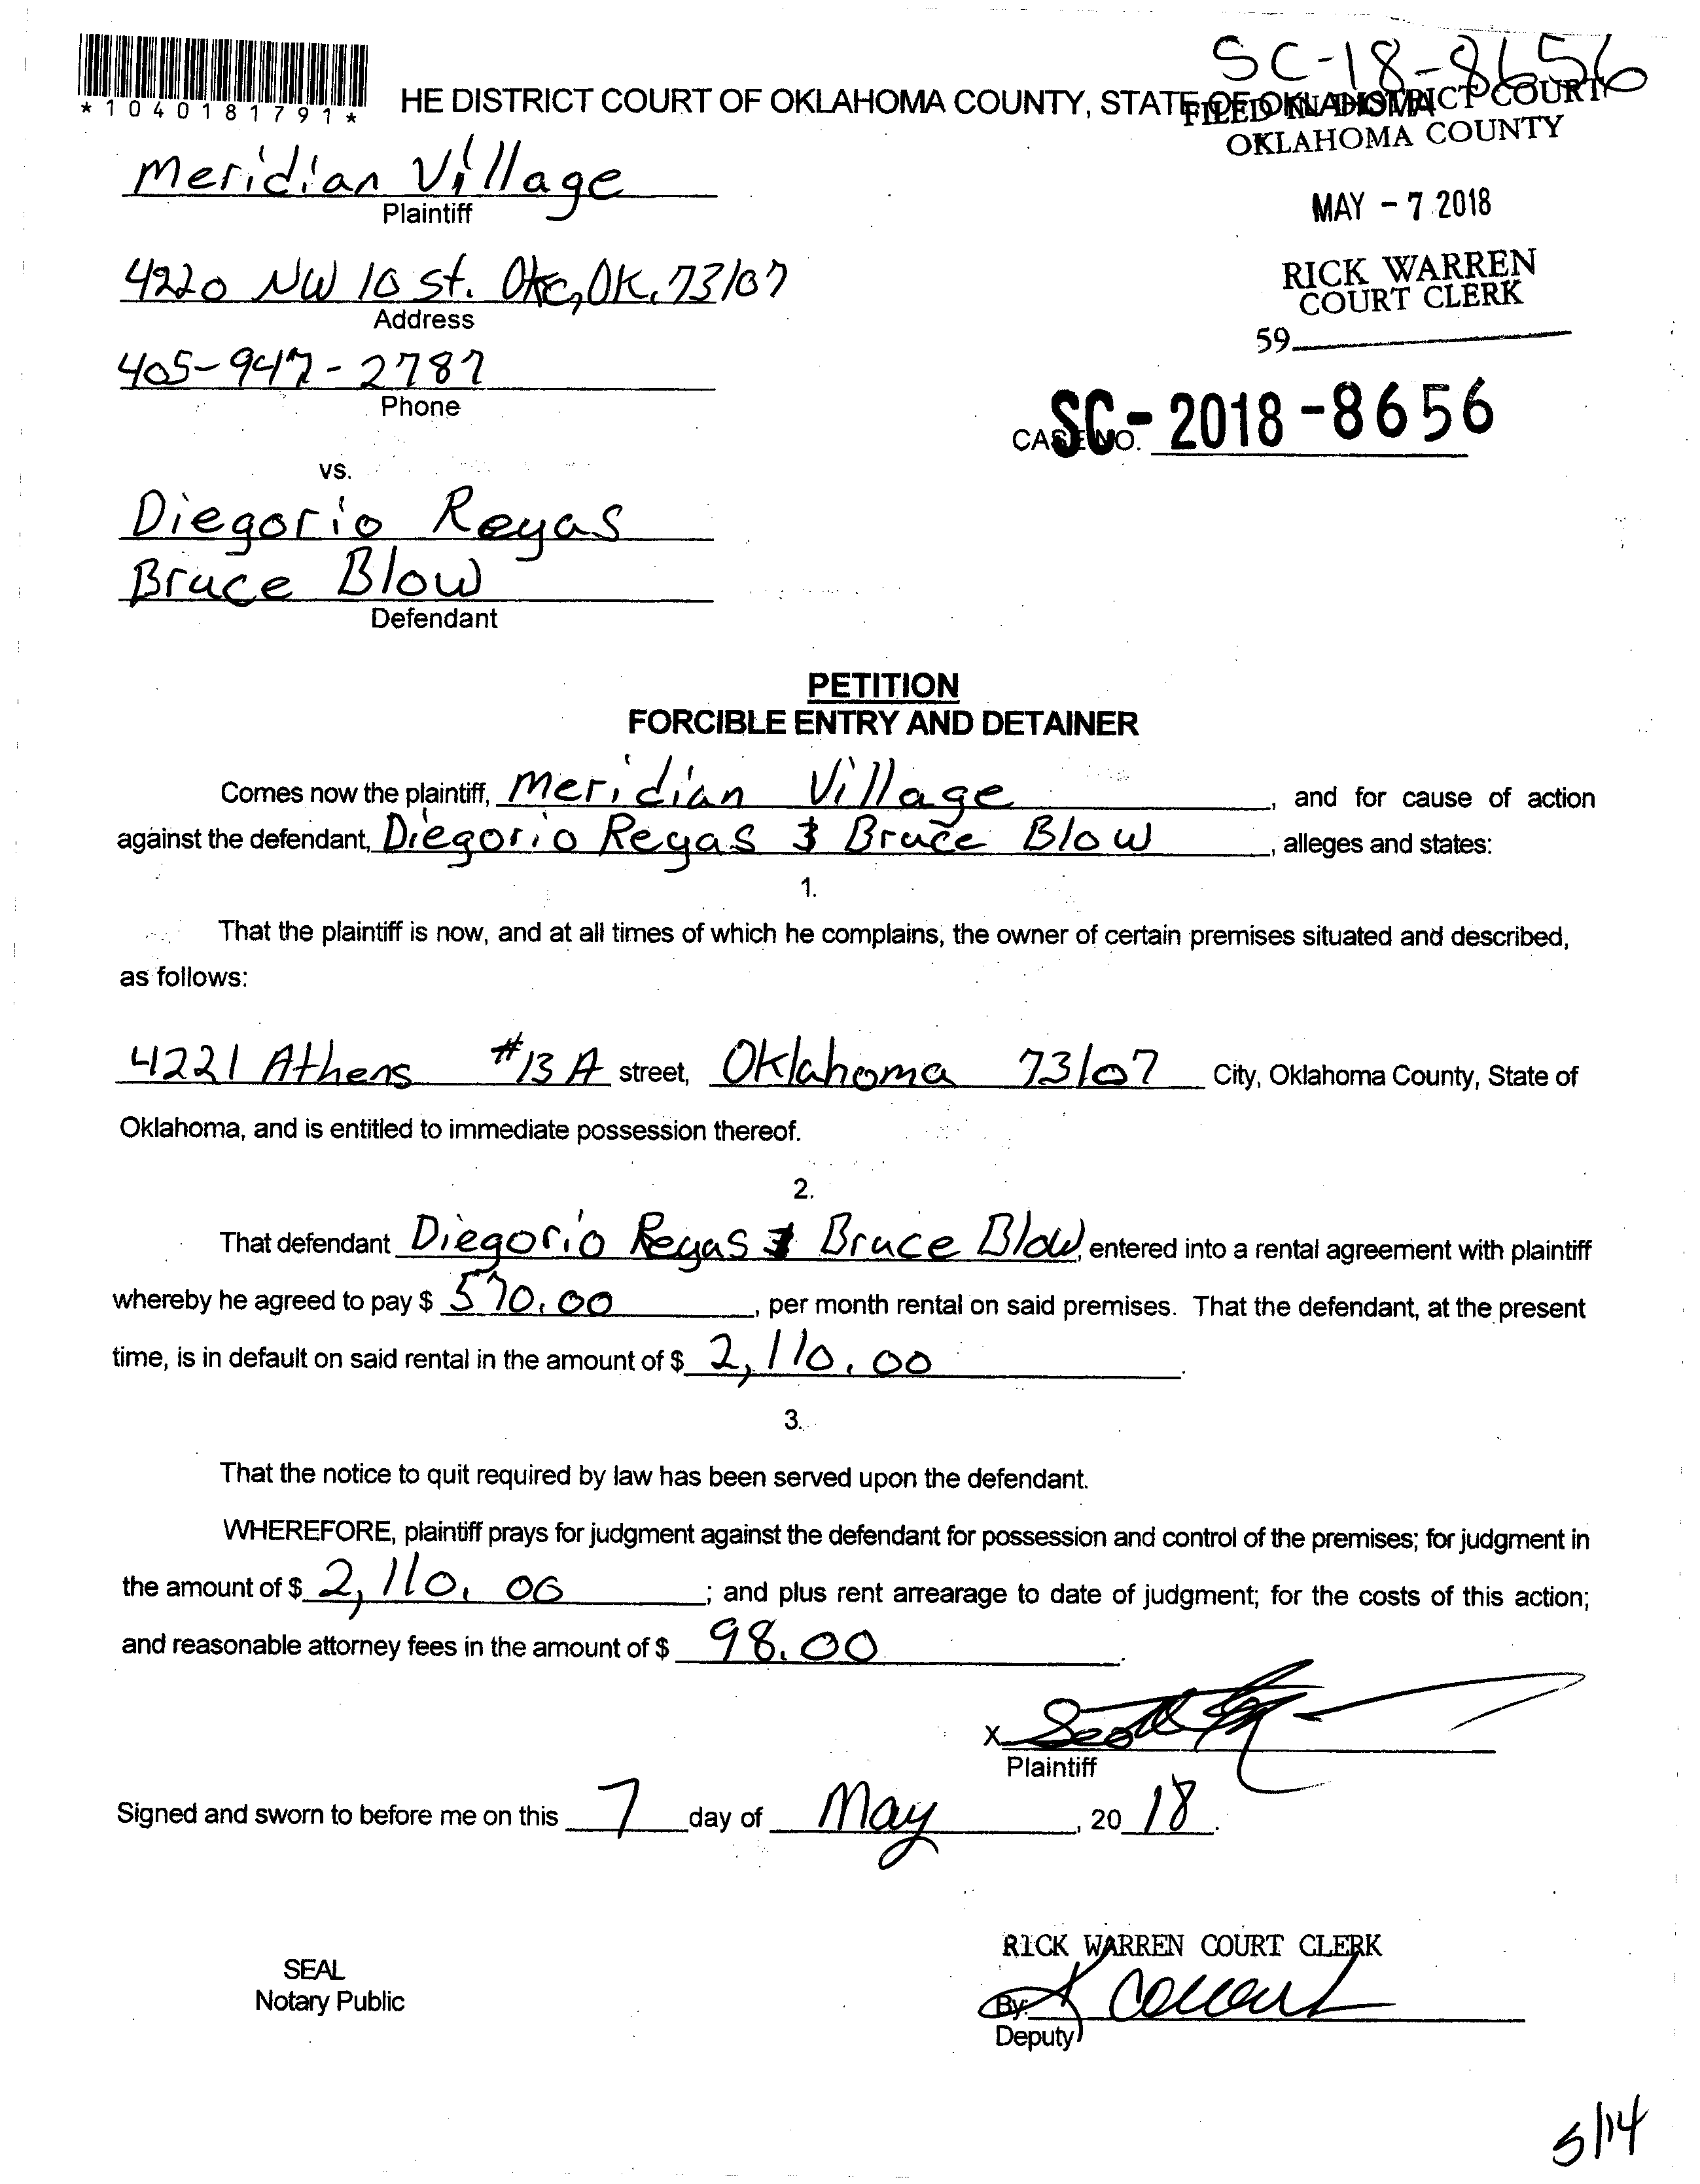 SC-18-8656
*1040181791*
HE DISTRICT COURT OF OKLAHOMA COUNTY, STATE OF OKLAHOMA
FILED IN DISTRICT COURT
OKLAHOMA COUNTY
Meridian Village
Plaintiff
MAY - 7 2018
4220 NW 10 St. OKC, OK. 73107
Address
RICK WARREN
COURT CLERK
59
405-947-2787
Phone
CASE NO. SC-2018-8656
vs.
Diegorio Reyas
Bruce Blow
Defendant
PETITION
FORCIBLE ENTRY AND DETAINER
Comes now the plaintiff, Meridian Village, and for cause of action
against the defendant, Diegorio Reyas & Bruce Blow, alleges and states:
1.
That the plaintiff is now, and at all times of which he complains, the owner of certain premises situated and described,
as follows:
4221 Athens #13A street, Oklahoma 73107 City, Oklahoma County, State of
Oklahoma, and is entitled to immediate possession thereof.
2.
That defendant Diegorio Reyas & Bruce Blow, entered into a rental agreement with plaintiff
whereby he agreed to pay $ 570.00, per month rental on said premises. That the defendant, at the present
time, is in default on said rental in the amount of $ 2,110.00.
3.
That the notice to quit required by law has been served upon the defendant.
WHEREFORE, plaintiff prays for judgment against the defendant for possession and control of the premises; for judgment in
the amount of $ 2,110.00; and plus rent arrearage to date of judgment; for the costs of this action;
and reasonable attorney fees in the amount of $ 98.00.
X Scott
Plaintiff
Signed and sworn to before me on this 7 day of May, 2018.
RICK WARREN COURT CLERK
SEAL
Notary Public
By:
Deputy
5/14